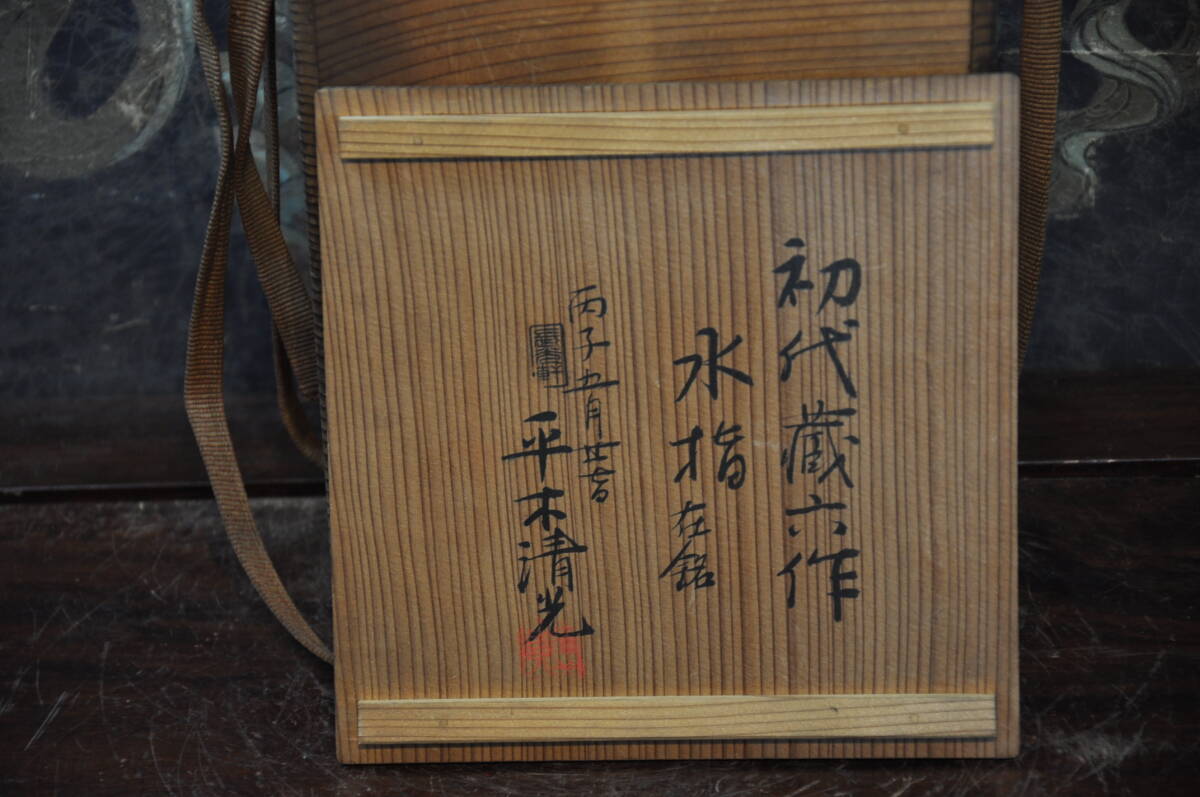 初代藏六作
水指在銘
丙子五月廿
平木清光